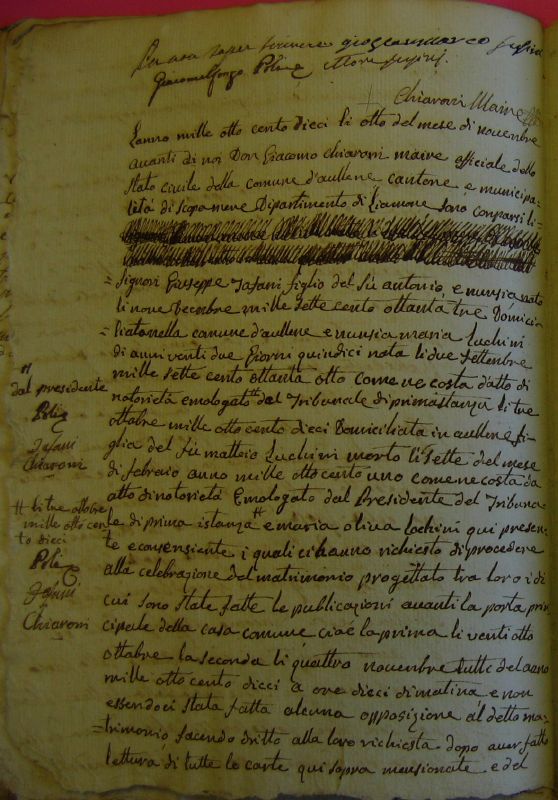 saper scrivere
Giacomo Poli
Chiaroni Maire
Lanno mille otto cento dieci li otto del mese di novenbre
avanti di noi Don Giacomo Chiaroni maire officiale dello
stato civile della comune d'aullene cantone e municipa-
lità di scopamene Dipartimento di Liamone sono conparsi li
= signori Giuseppe Tafani figlio del fù antonio, e nunsia nato
li nove Decenbre mille sette cento ottanta tre Domici-
liato nella comune d'aullene e nunsia maria Luchini
di anni venti due Giorni quindici nata li due settenbre
mille sette cento ottanta otto come ne costa d'atto di
notorietà emologato # dal Tribunale di prima stanza li tre
ottobre mille otto cento dieci Domiciliata in aullene fi-
glia del fù matteio Luchini morto li sette del mese
di febraio anno mille otto cento uno come ne costa da
atto di notorietà Emologato dal Presidente del Tribuna-
le di prima istanza # e maria oliva lochini qui presen-
te e consensiente i quali ci hanno richiesto di procedere
alla celebrazione del matrimonio progettato tra loro i di
cui sono state fatte le publicazioni avanti la porta prin
cipale della casa comune cioé la prima li venti otto
ottobre la seconda li quattro novenbre tutte del anno
mille otto cento dieci a ore dieci di matina e non
essendoci stata fatta alcuna opposizione al detto ma-
=trimonio facendo dritto alla loro richiesta dopo aver fatto
lettura di tutte le carte qui sopra mensionate e del
dal presidente
Poli
Tafani
Chiaroni
# li tre ottobre
mille otto cen
to dieci
Poli
Tafani
Chiaroni